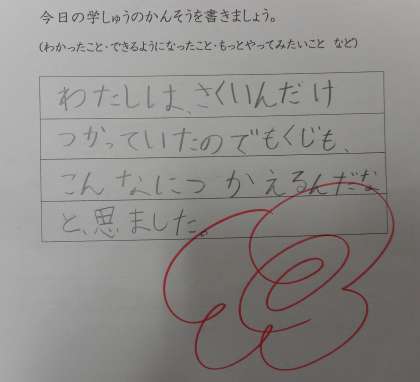 今日の学しゅうのかんそうを書きましょう。
(わかったこと・できるようになったこと・もっとやってみたいこと など)
わたしは、さくいんだけ
つかっていたのでもくじも、
こんなにつかえるんだな
と、思ました。